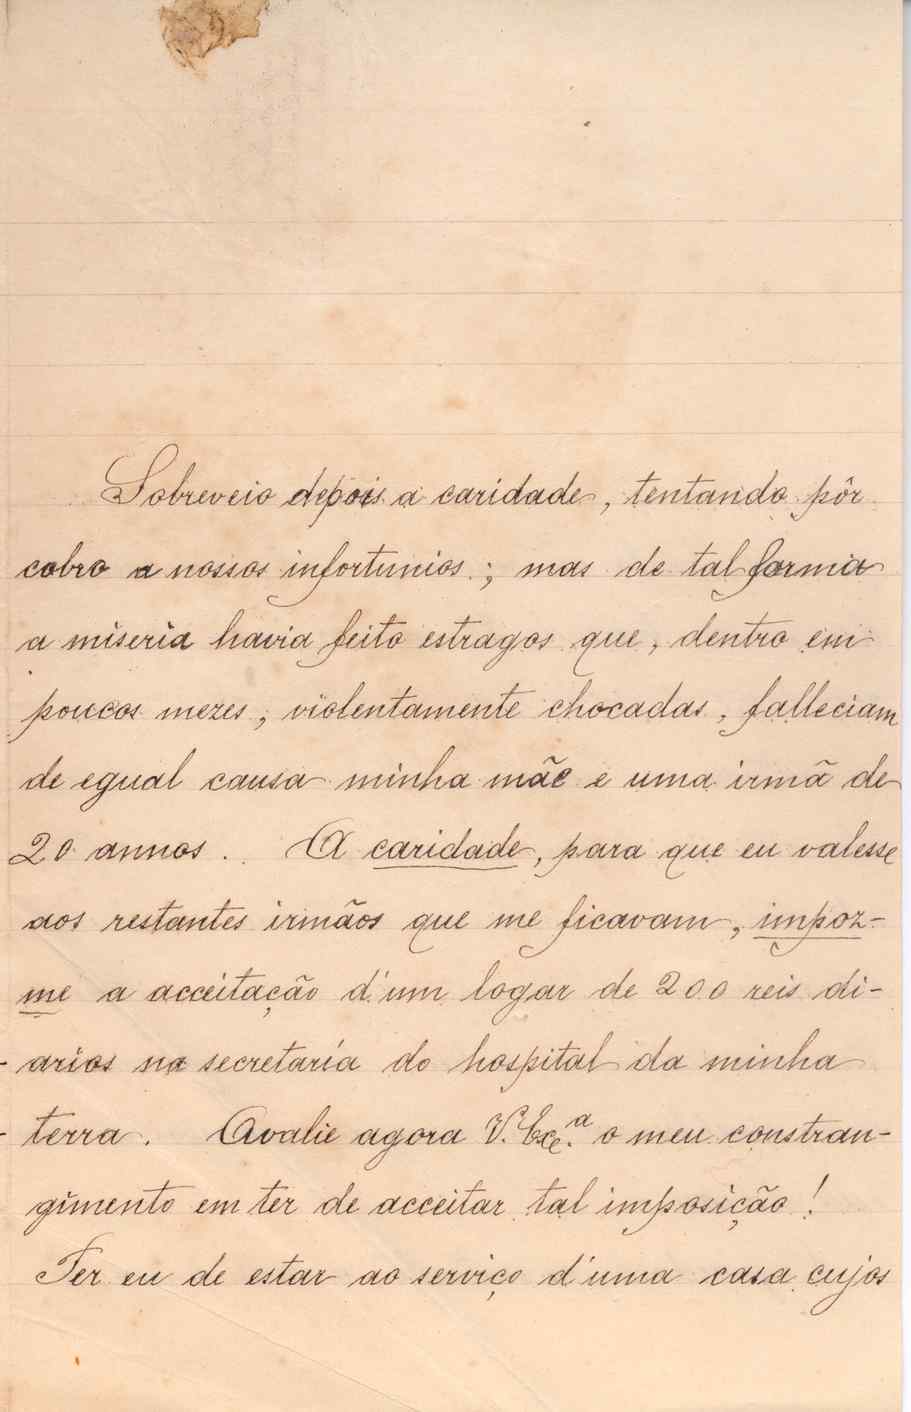 Sobreveio depois a caridade, tentando pôr
cobro a nossos infortunios; mas de tal forma
a miseria havia feito estragos que, dentro em
poucos mezes, violentamente chocadas, falleciam
de egual causa minha mãe e uma irmã de
20 annos.. A caridade, para que eu valesse
aos restantes irmãos que me ficavam, impoz-
me a acceitação d'um logar de 200 reis di-
arios na secretaría do hospital da minha
terra. Avalie agora V. Exc.ª o meu constran-
gimento em ter de acceitar tal imposição!
Ter eu de estar ao serviço d'uma casa cujos